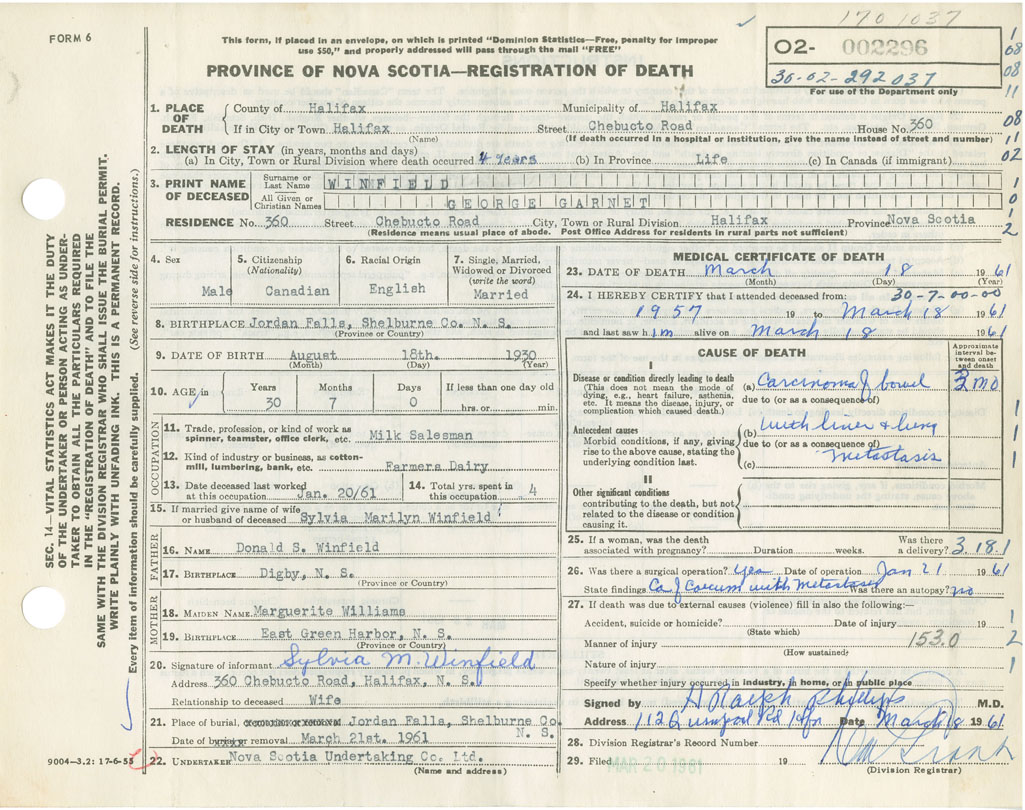 1701037
FORM 6
This form, if placed in an envelope, on which is printed "Dominion Statistics—Free, penalty for improper
use $50," and properly addressed will pass through the mail "FREE"
PROVINCE OF NOVA SCOTIA—REGISTRATION OF DEATH
02- 002296
30-02-292037
For use of the Department only
1. PLACE OF DEATH
County of Halifax Municipality of Halifax
If in City or Town Halifax Street Chebucto Road House No. 360
(Name) (If death occurred in a hospital or institution, give the name instead of street and number)
2. LENGTH OF STAY (in years, months and days)
(a) In City, Town or Rural Division where death occurred 4 Years (b) In Province Life (c) In Canada (if immigrant)
3. PRINT NAME OF DECEASED
Surname or Last Name WINFIELD
All Given or Christian Names GEORGE GARNET
RESIDENCE No. 360 Street Chebucto Road City, Town or Rural Division Halifax Province Nova Scotia
(Residence means usual place of abode. Post Office Address for residents in rural parts not sufficient)
4. Sex Male
5. Citizenship (Nationality) Canadian
6. Racial Origin English
7. Single, Married, Widowed or Divorced (write the word) Married
8. BIRTHPLACE Jordan Falls, Shelburne Co. N. S.
(Province or Country)
9. DATE OF BIRTH August 18th. 1930
(Month) (Day) (Year)
10. AGE in Years 30 Months 7 Days 0 If less than one day old hrs. or min.
OCCUPATION
11. Trade, profession, or kind of work as spinner, teamster, office clerk, etc. Milk Salesman
12. Kind of industry or business, as cotton-mill, lumbering, bank, etc. Farmers Dairy
13. Date deceased last worked at this occupation Jan. 20/61
14. Total yrs. spent in this occupation 4
15. If married give name of wife or husband of deceased Sylvia Marilyn Winfield
FATHER
16. NAME Donald S. Winfield
17. BIRTHPLACE Digby, N. S.
(Province or Country)
MOTHER
18. MAIDEN NAME Marguerite Williams
19. BIRTHPLACE East Green Harbor, N. S.
(Province or Country)
20. Signature of informant Sylvia M. Winfield
Address 360 Chebucto Road, Halifax, N. S.
Relationship to deceased Wife
21. Place of burial, Jordan Falls, Shelburne Co. N. S.
Date of burial or removal March 21st. 1961
22. UNDERTAKER Nova Scotia Undertaking Co. Ltd.
(Name and address)
MEDICAL CERTIFICATE OF DEATH
23. DATE OF DEATH March 18 1961
(Month) (Day) (Year)
24. I HEREBY CERTIFY that I attended deceased from: 30-7-00-00
1957 19 to March 18 1961
and last saw him alive on March 18 1961
CAUSE OF DEATH
Approximate interval between onset and death
I
Disease or condition directly leading to death
(This does not mean the mode of dying, e.g., heart failure, asthenia, etc. It means the disease, injury, or complication which caused death.)
(a) Carcinoma of bowel 3 mo
due to (or as a consequence of)
Antecedent causes
Morbid conditions, if any, giving rise to the above cause, stating the underlying condition last.
(b) with liver & lung
due to (or as a consequence of)
(c) Metastasis
II
Other significant conditions
contributing to the death, but not related to the disease or condition causing it.
25. If a woman, was the death associated with pregnancy? Duration weeks. Was there a delivery? 3.18.1
26. Was there a surgical operation? Yes Date of operation Jan 21 1961
State findings Ca of Caecum with Metastases Was there an autopsy? no
27. If death was due to external causes (violence) fill in also the following:—
Accident, suicide or homicide? Date of injury 19
(State which)
Manner of injury 153.0
(How sustained)
Nature of injury
Specify whether injury occurred in industry, in home, or in public place
Signed by A Ralph Phillips M.D.
Address 112 Quinpool Rd Hfx Date March 18 1961
28. Division Registrar's Record Number
29. Filed MAR 20 1961 19
(Division Registrar)
SEC. 14—VITAL STATISTICS ACT MAKES IT THE DUTY
OF THE UNDERTAKER OR PERSON ACTING AS UNDER-
TAKER TO OBTAIN ALL THE PARTICULARS REQUIRED
IN THE "REGISTRATION OF DEATH" AND TO FILE THE
SAME WITH THE DIVISION REGISTRAR WHO SHALL ISSUE THE BURIAL PERMIT.
WRITE PLAINLY WITH UNFADING INK. THIS IS A PERMANENT RECORD.
Every item of information should be carefully supplied. (See reverse side for instructions.)
9004-3.2: 17-6-55
1
08
08
11
08
11
02
1
0
1
2
1
1
1
1
1
2
1